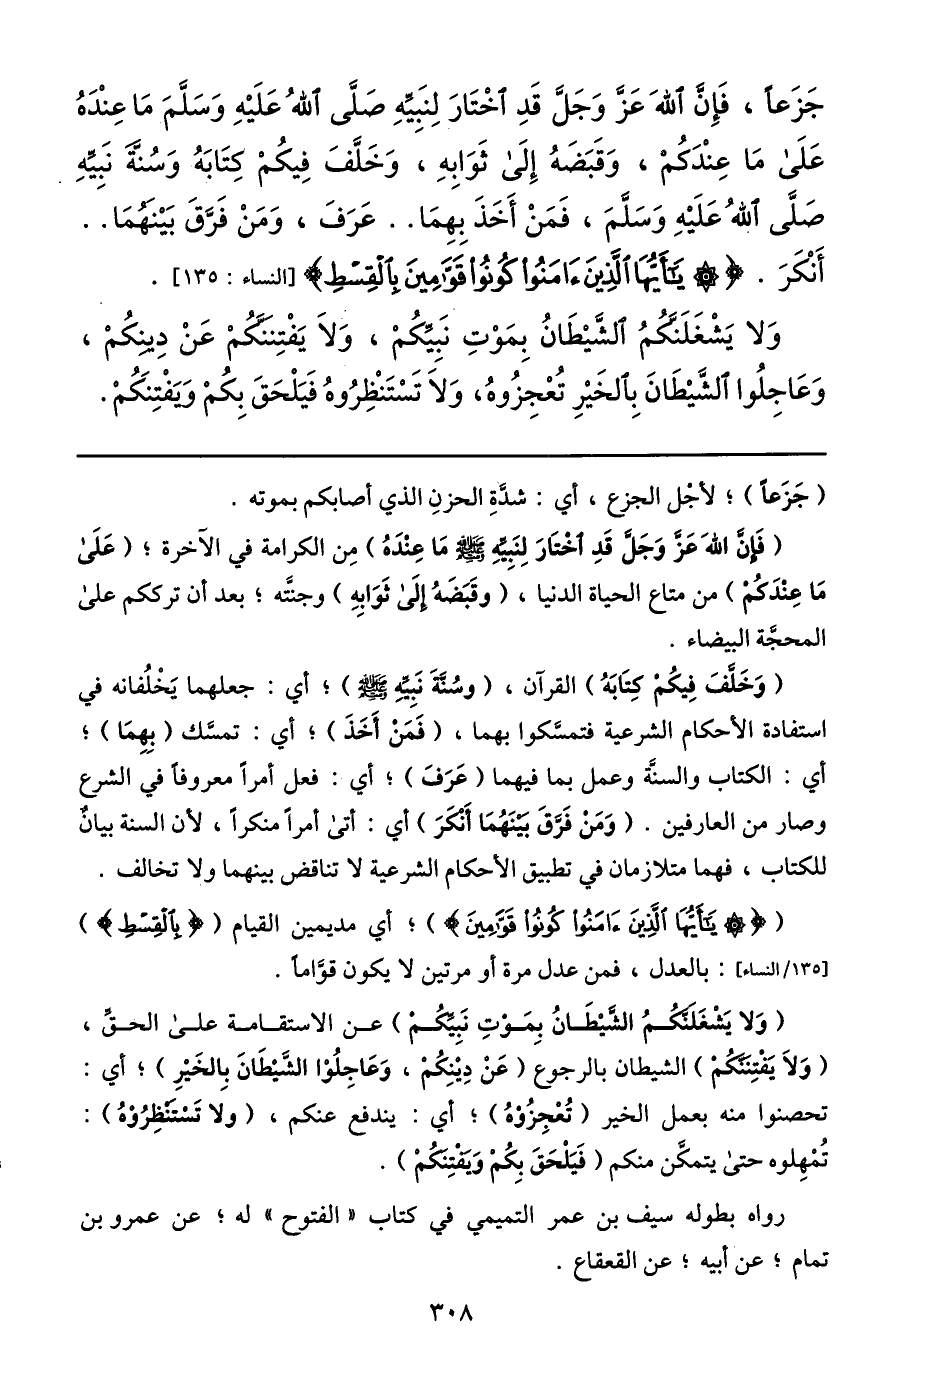 جَزَعاً ، فَإِنَّ ٱللهَ عَزَّ وَجَلَّ قَدِ ٱخْتَارَ لِنَبِيِّهِ صَلَّى ٱللهُ عَلَيْهِ وَسَلَّمَ مَا عِنْدَهُ
عَلَىٰ مَا عِنْدَكُمْ ، وَقَبَضَهُ إِلَىٰ ثَوَابِهِ ، وَخَلَّفَ فِيكُمْ كِتَابَهُ وَسُنَّةَ نَبِيِّهِ
صَلَّى ٱللهُ عَلَيْهِ وَسَلَّمَ ، فَمَنْ أَخَذَ بِهِمَا.. عَرَفَ ، وَمَنْ فَرَّقَ بَيْنَهُمَا..
أَنْكَرَ . ﴿ ۞ يَـٰٓأَيُّهَا ٱلَّذِينَ ءَامَنُوا۟ كُونُوا۟ قَوَّٰمِينَ بِٱلْقِسْطِ﴾ [النساء : ١٣٥] .
وَلَا يَشْغَلَنَّكُمُ ٱلشَّيْطَانُ بِمَوْتِ نَبِيِّكُمْ ، وَلاَ يَفْتِنَنَّكُمْ عَنْ دِينِكُمْ ،
وَعَاجِلُوا ٱلشَّيْطَانَ بِٱلْخَيْرِ تُعْجِزُوهُ، وَلاَ تَسْتَنْظِرُوهُ فَيَلْحَقَ بِكُمْ وَيَفْتِنَكُمْ.
( جَزَعاً ) ؛ لأجْل الجزع ، أي : شدَّةِ الحزنِ الذي أصابكم بموته .
( فَإِنَّ اللهَ عَزَّ وَجَلَّ قَدِ ٱخْتَارَ لِنَبِيِّهِ ﷺ مَا عِنْدَهُ ) مِن الكرامة في الآخرة ؛ ( عَلَىٰ
مَا عِنْدَكُمْ ) من متاع الحياة الدنيا ، ( وقَبَضَهُ إِلَىٰ ثَوَابِهِ ) وجنتَّه ؛ بعد أن ترككم علىٰ
المحجَّة البيضاء .
( وَخَلَّفَ فِيكُمْ كِتَابَهُ ) القرآن ، ( وسُنَّةَ نَبِيِّهِ ﷺ ) ؛ أي : جعلهما يَخْلُفانه في
استفادة الأحكام الشرعية فتمسَّكوا بهما ، ( فَمَنْ أَخَذَ ) ؛ أي : تمسَّك ( بِهِمَا ) ؛
أي : الكتاب والسنَّة وعمل بما فيهما ( عَرَفَ ) ؛ أي : فعل أمراً معروفاً في الشرع
وصار من العارفين . ( وَمَنْ فَرَّقَ بَيْنَهُمَا أَنْكَرَ ) أي : أتىٰ أمراً منكراً ، لأن السنة بيانٌ
للكتاب ، فهما متلازمان في تطبيق الأحكام الشرعية لا تناقض بينهما ولا تخالف .
( ﴿ ۞ يَـٰٓأَيُّهَا ٱلَّذِينَ ءَامَنُوا۟ كُونُوا۟ قَوَّٰمِينَ ﴾ ) ؛ أي مديمين القيام ( ﴿ بِٱلْقِسْطِ ﴾ )
[١٣٥/ النساء] : بالعدل ، فمن عدل مرة أو مرتين لا يكون قوَّاماً .
( وَلا يَشْغَلَنَّكُـمُ الشَّيْطَـانُ بِمَـوْتِ نَبِيِّكُـمْ ) عـن الاستقـامـة علـىٰ الحـقِّ ،
( وَلاَ يَفْتِنَنَّكُمْ ) الشيطان بالرجوع ( عَنْ دِيْنِكُمْ ، وَعَاجِلُوْا الشَّيْطَانَ بِالخَيْرِ ) ؛ أي :
تحصنوا منه بعمل الخير ( تُعْجِزُوْهُ ) ؛ أي : يندفع عنكم ، ( ولا تَسْتَنْظِرُوْهُ ) :
تُمْهِلوه حتىٰ يتمكَّن منكم ( فَيَلْحَقَ بِكُمْ وَيَفْتِنَكُمْ ) .
رواه بطوله سيف بن عمر التميمي في كتاب « الفتوح » له ؛ عن عمرو بن
تمام ؛ عن أبيه ؛ عن القعقاع .
٣٠٨